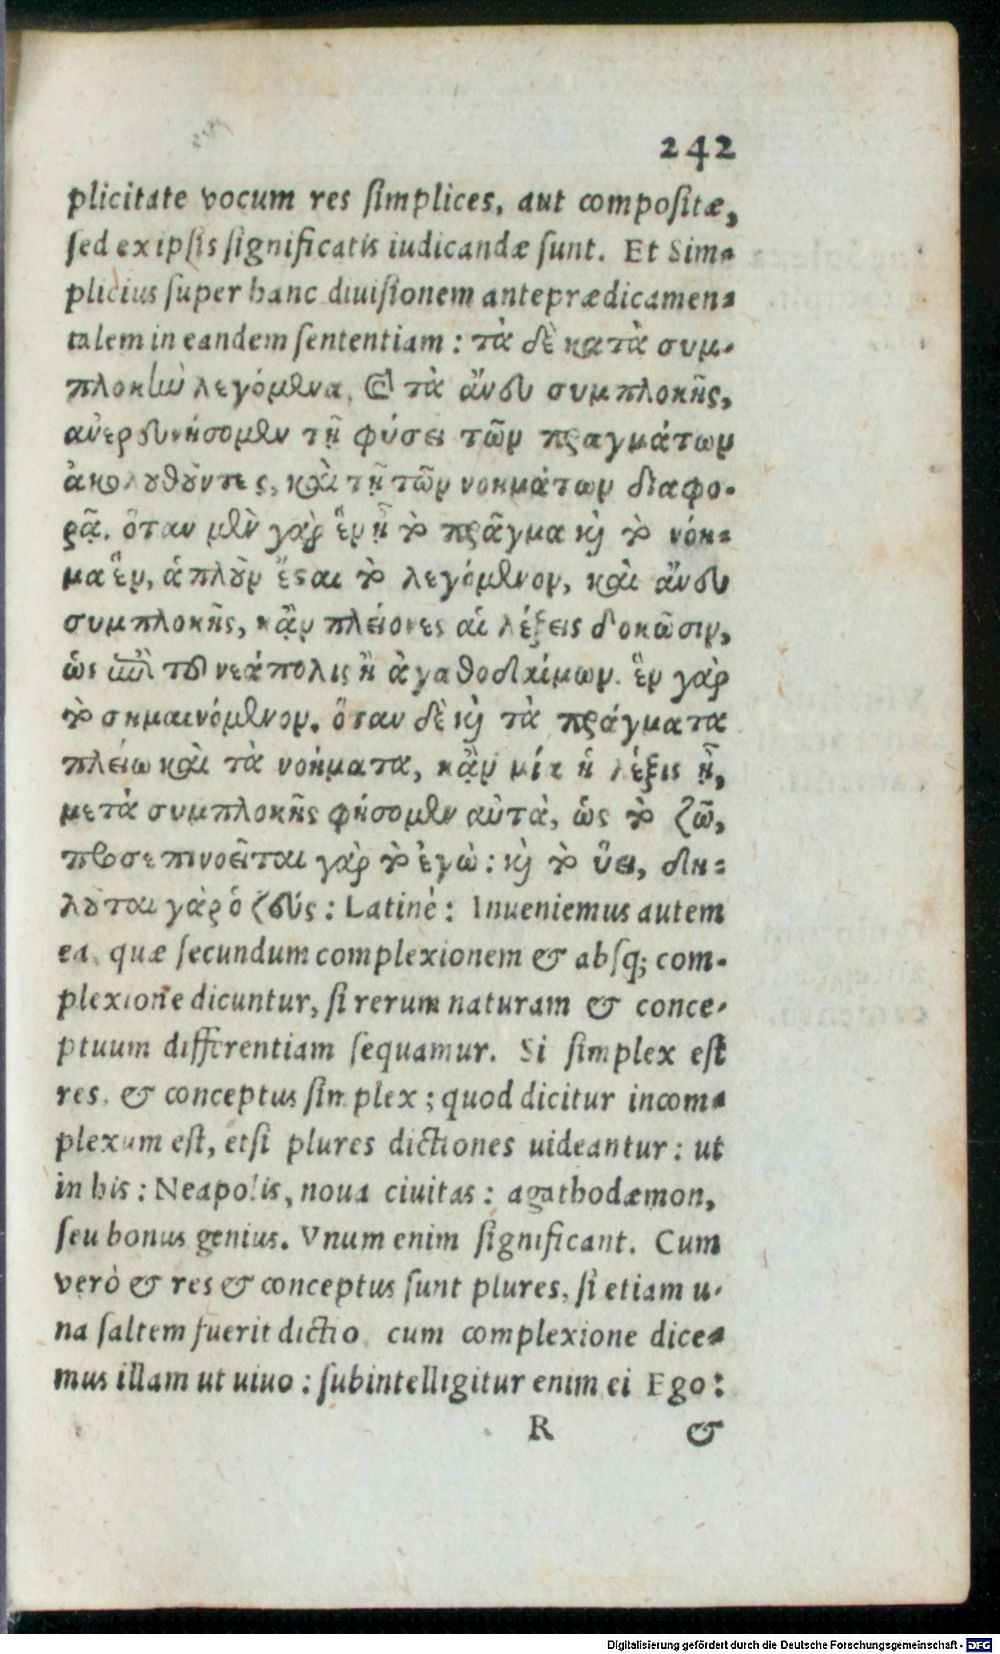 242
plicitate vocum res simplices, aut compositæ,
sed ex ipsis significatis iudicandæ sunt. Et Sim-
plicius super hanc diuisionem anteprædicamen-
talem in eandem sententiam: τὰ δὲ κατὰ συμ-
πλοκὴν λεγόμενα, καὶ τὰ ἄνευ συμπλοκῆς,
ἀνερευνήσομεν τῇ φύσει τῶν πραγμάτων
ἀκολουθοῦντες, καὶ τῇ τῶν νοημάτων διαφο-
ρᾷ. ὅταν μὲν γὰρ ἓν ᾖ τὸ πρᾶγμα καὶ τὸ νόη-
μα ἓν, ἁπλοῦν ἔσται τὸ λεγόμενον, καὶ ἄνευ
συμπλοκῆς, κἂν πλείονες αἱ λέξεις δοκῶσιν,
ὡς ἐπὶ τοῦ νεάπολις ἢ ἀγαθοδαίμων. ἓν γὰρ
τὸ σημαινόμενον. ὅταν δὲ καὶ τὰ πράγματα
πλείω καὶ τὰ νοήματα, κἂν μία ἡ λέξις ᾖ,
μετὰ συμπλοκῆς φήσομεν αὐτὰ, ὡς τὸ ζῶ,
προσεπινοεῖται γὰρ τὸ ἐγὼ: καὶ τὸ ὕει, δη-
λοῦται γὰρ ὁ ζεύς: Latinè: Inueniemus autem
ea, quæ secundum complexionem & absq; com-
plexione dicuntur, si rerum naturam & conce-
ptuum differentiam sequamur. Si simplex est
res, & conceptus simplex; quod dicitur incom-
plexum est, etsi plures dictiones uideantur: ut
in his: Neapolis, noua ciuitas: agathodæmon,
seu bonus genius. Vnum enim significant. Cum
verò & res & conceptus sunt plures, si etiam u-
na saltem fuerit dictio, cum complexione dice-
mus illam ut uiuo: subintelligitur enim ei Ego:
R &
Digitalisierung gefördert durch die Deutsche Forschungsgemeinschaft - DFG